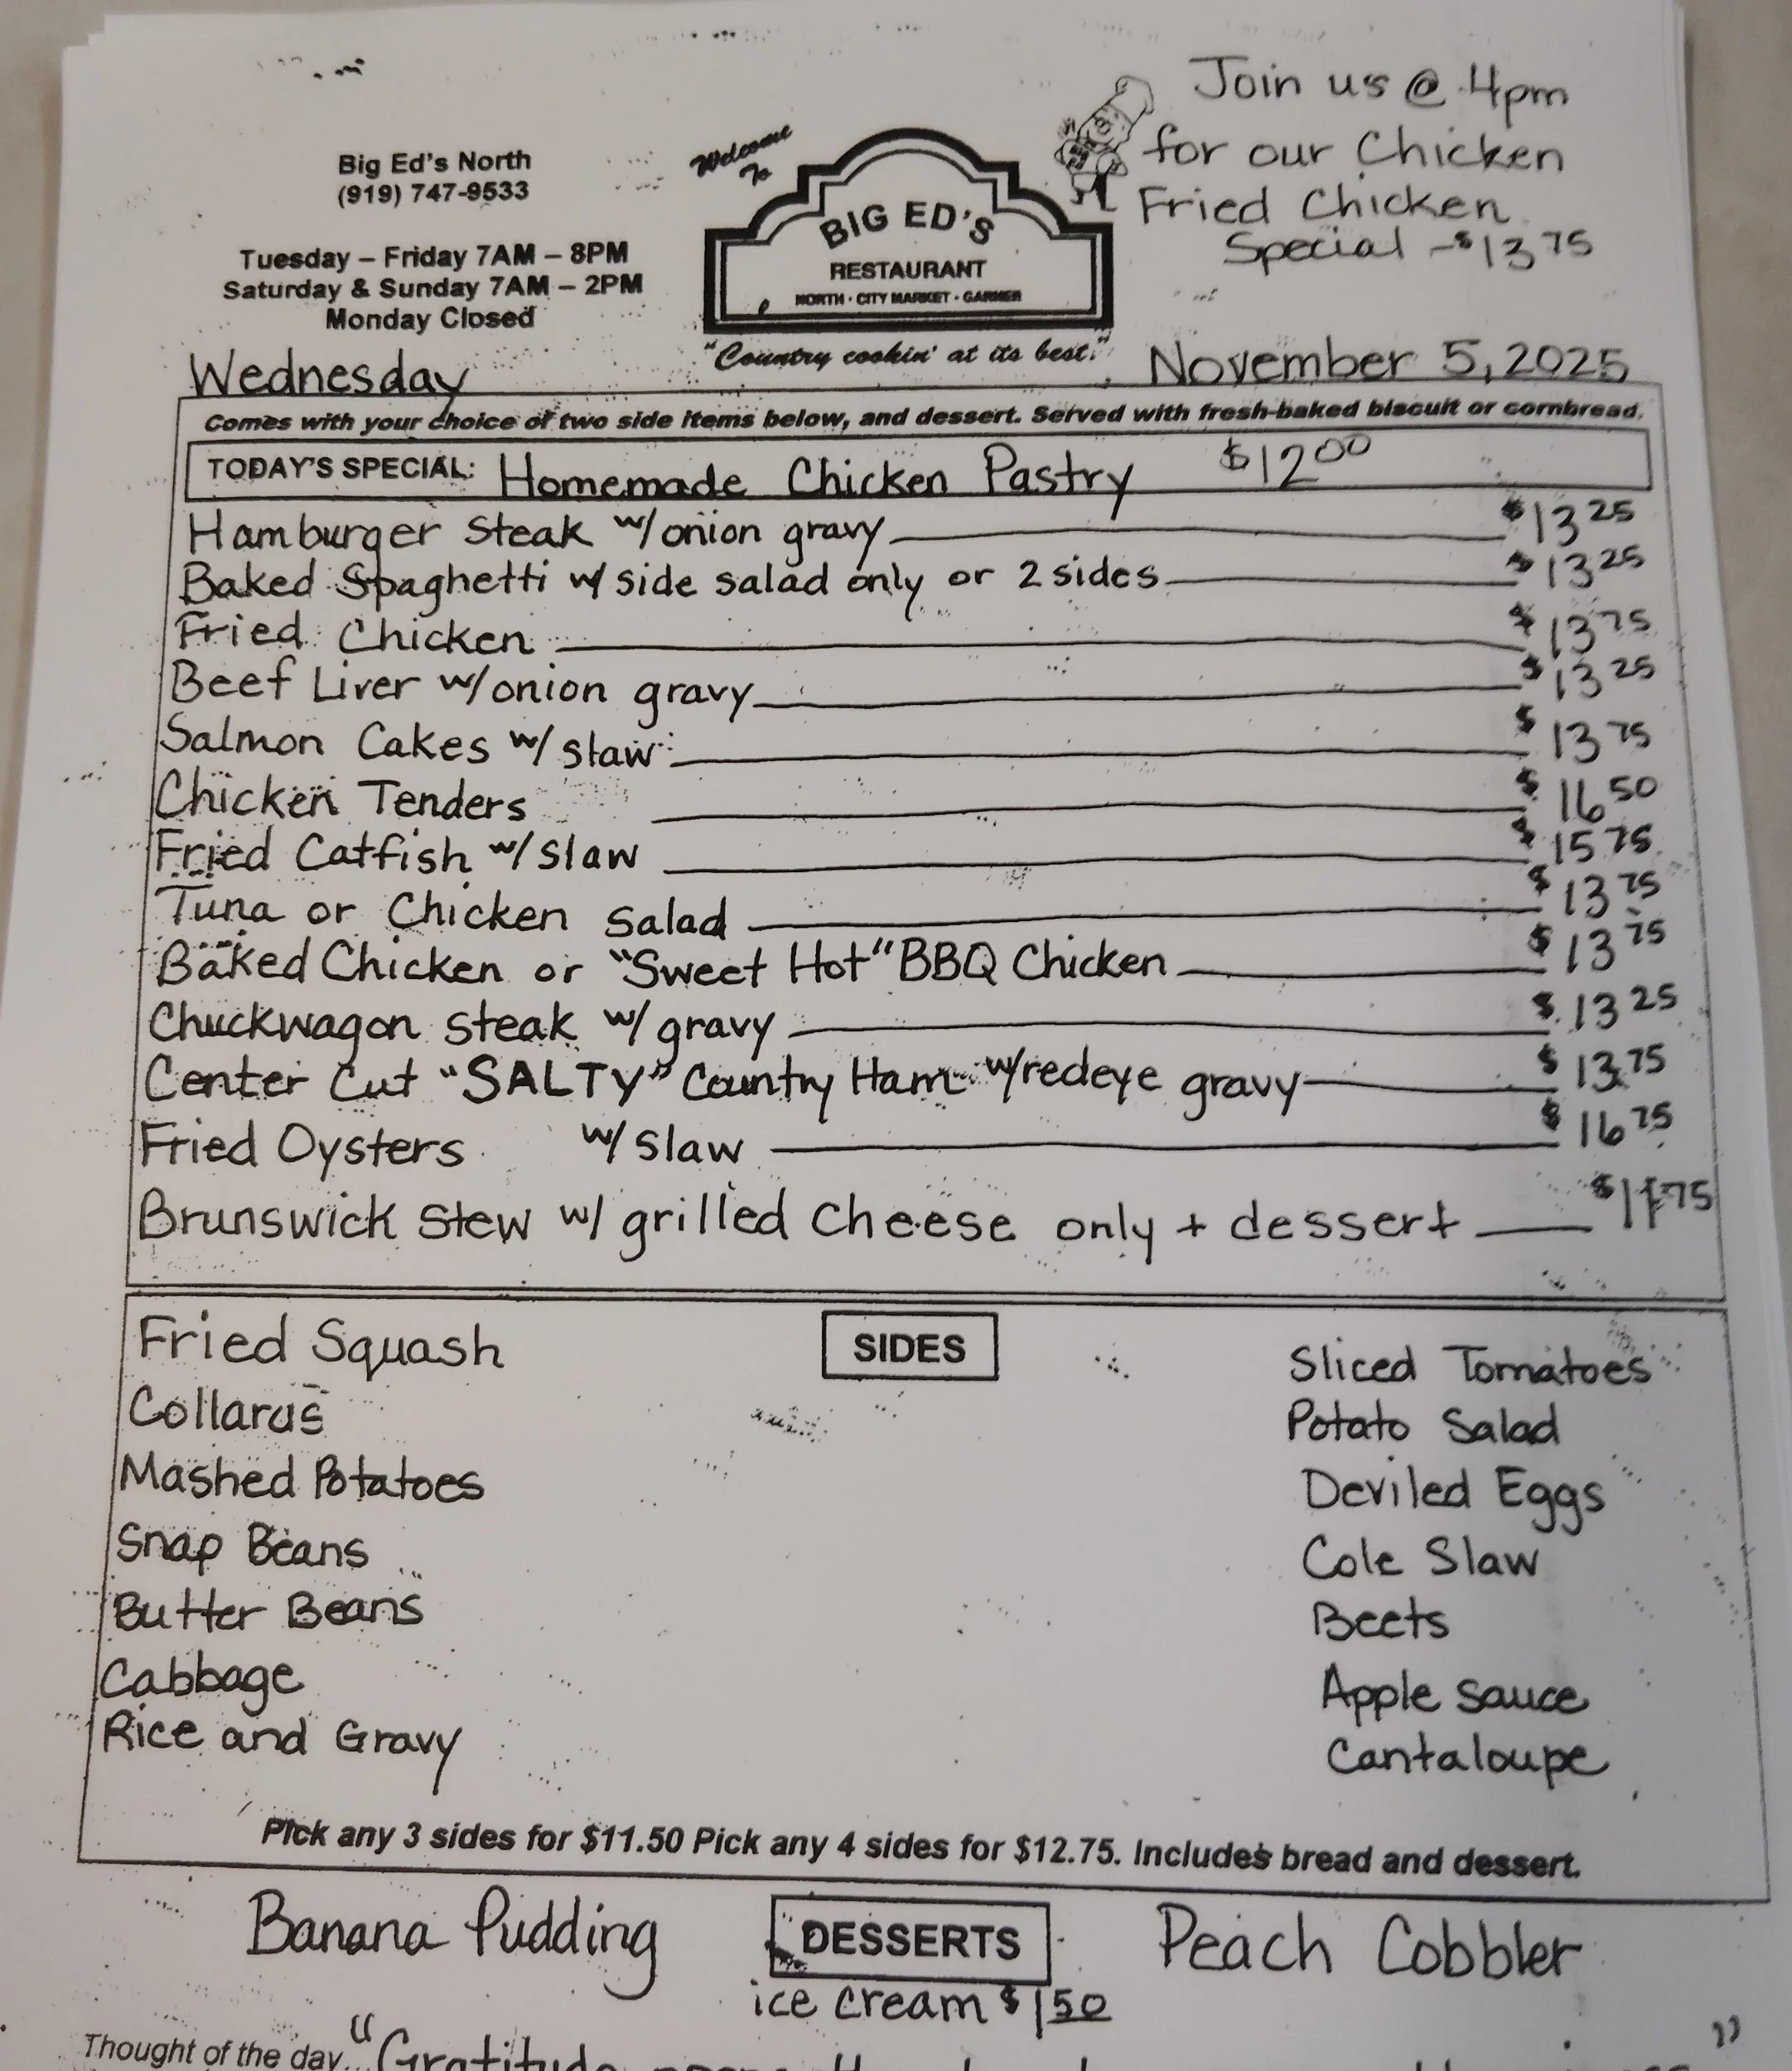 Join us @ 4pm
for our Chicken
Fried Chicken
Special - $13 75
Big Ed's North
(919) 747-9533
Tuesday – Friday 7AM – 8PM
Saturday & Sunday 7AM – 2PM
Monday Closed
Welcome
To
BIG ED'S
RESTAURANT
NORTH · CITY MARKET · GARNER
"Country cookin' at its best."
Wednesday November 5, 2025
Comes with your choice of two side items below, and dessert. Served with fresh-baked biscuit or cornbread.
TODAY'S SPECIAL: Homemade Chicken Pastry $12 00
Hamburger Steak w/onion gravy $13 25
Baked Spaghetti w/ side salad only or 2 sides $13 25
Fried Chicken $13 75
Beef Liver w/onion gravy $13 25
Salmon Cakes w/ slaw $13 75
Chicken Tenders $16 50
Fried Catfish w/ slaw $15 75
Tuna or Chicken salad $13 75
Baked Chicken or "Sweet Hot" BBQ Chicken $13 75
Chuckwagon steak w/ gravy $13 25
Center Cut "SALTY" Country Ham w/redeye gravy $13 75
Fried Oysters w/ slaw $16 75
Brunswick Stew w/ grilled cheese only + dessert $11 75
SIDES
Fried Squash
Collards
Mashed Potatoes
Snap Beans
Butter Beans
Cabbage
Rice and Gravy
Sliced Tomatoes
Potato Salad
Deviled Eggs
Cole Slaw
Beets
Apple sauce
Cantaloupe
Pick any 3 sides for $11.50 Pick any 4 sides for $12.75. Includes bread and dessert.
Banana Pudding DESSERTS Peach Cobbler
ice cream $1 50
Thought of the day... "Gratitude